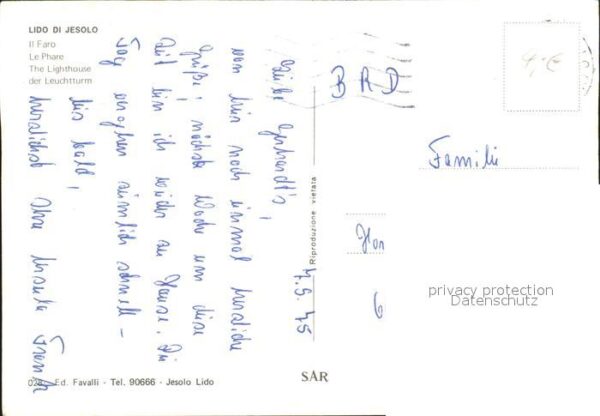 LIDO DI JESOLO
Il Faro
Le Phare
The Lighthouse
der Leuchtturm
7.9.75
Liebe Gebrandt's,
von hier noch einmal herzliche
Grüße; nächste Woche um diese
Zeit bin ich wieder zu Hause. Die
Tage vergehen ziemlich schnell –
bis bald,
herzlichst Ihre Ursula
BRD
Familie
6
Riproduzione vietata
privacy protection
Datenschutz
Ed. Favalli - Tel. 90666 - Jesolo Lido
SAR